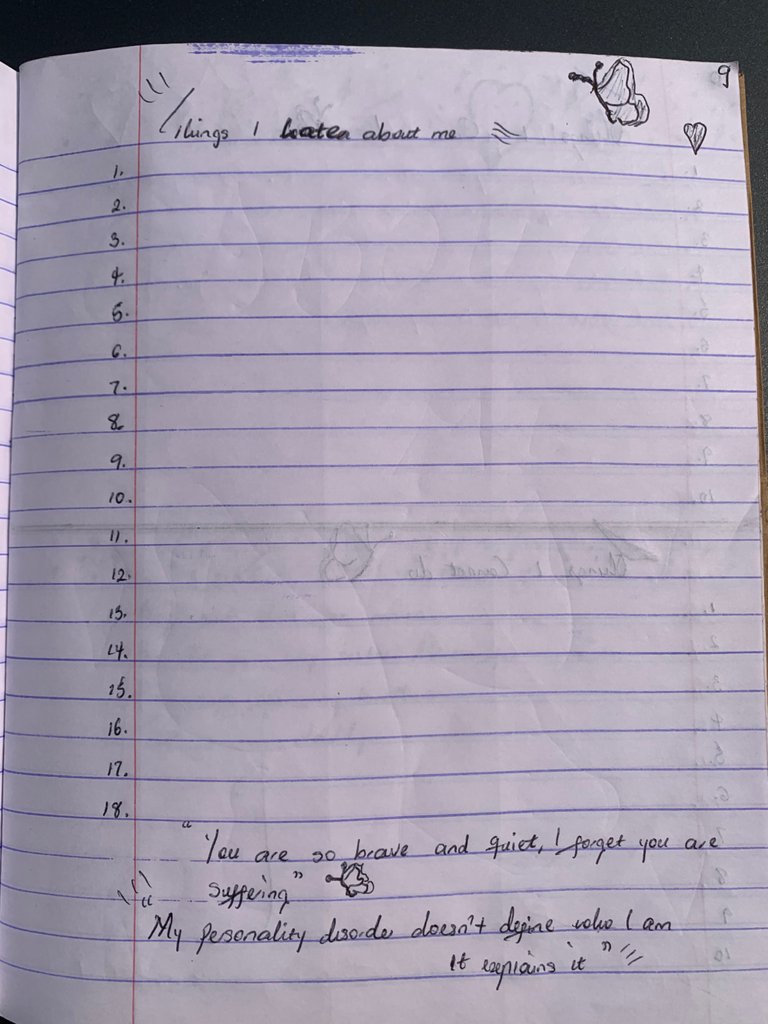 9
Things I hatea about me
1.
2.
3.
4.
5.
6.
7.
8.
9.
10.
11.
12.
13.
14.
15.
16.
17.
18.
"You are so brave and quiet, I forget you are
suffering"
"My personality disorder doesn't define who I am
It explains it"